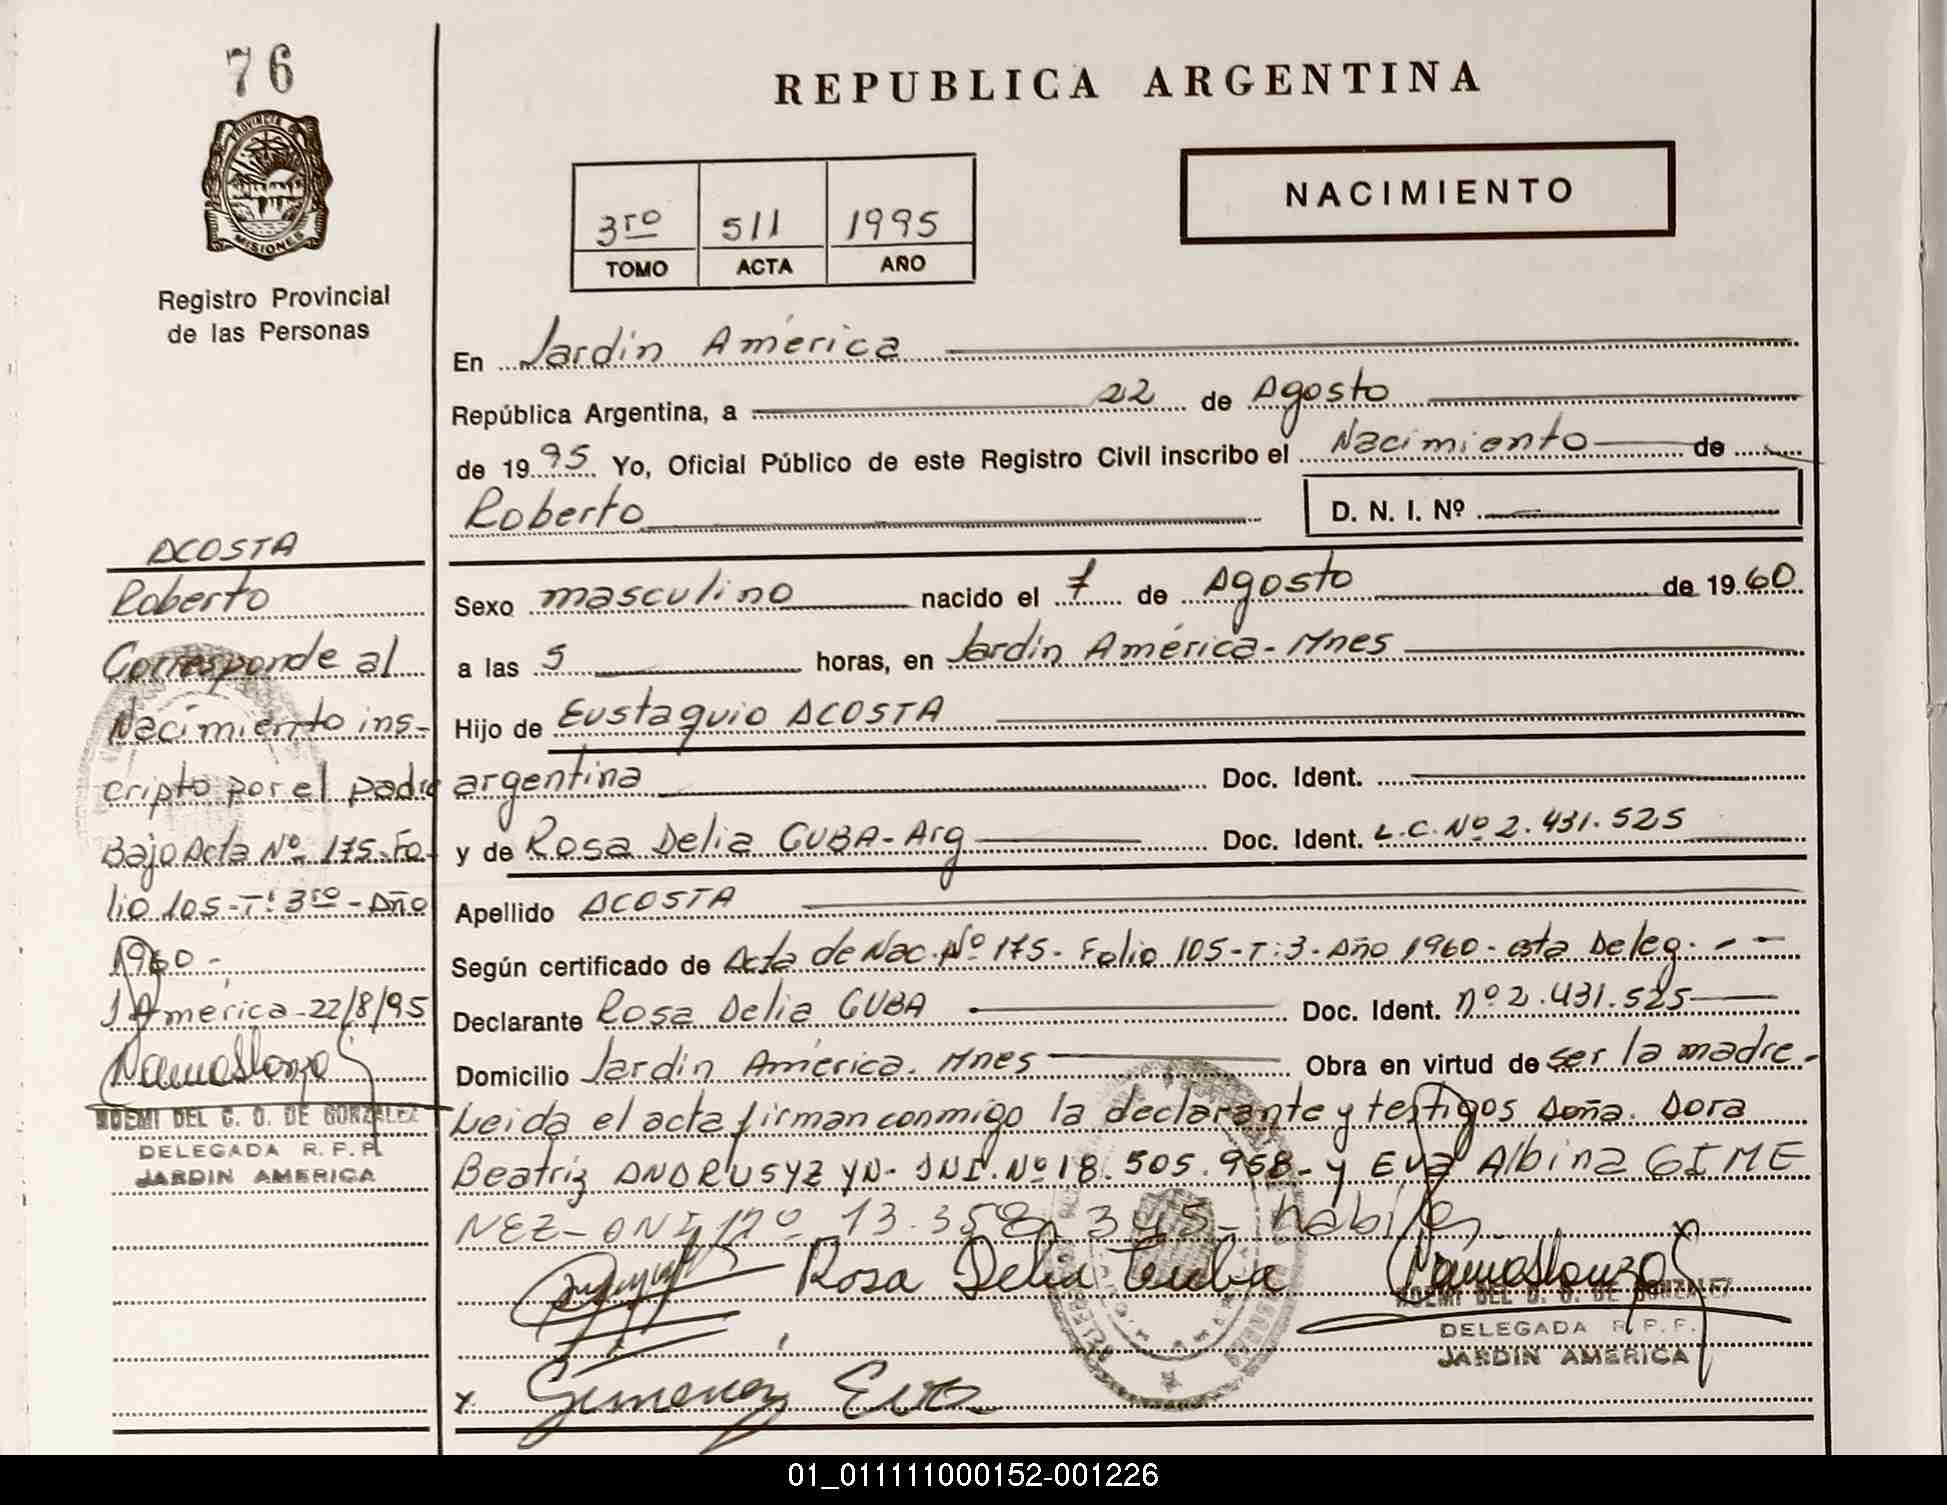 76
REPUBLICA ARGENTINA
PROVINCIA DE
MISIONES
Registro Provincial
de las Personas
3ro 511 1995
TOMO ACTA AÑO
NACIMIENTO
En Jardín América
República Argentina, a 22 de Agosto
de 1995 Yo, Oficial Público de este Registro Civil inscribo el Nacimiento de
Roberto
D. N. I. Nº
Sexo masculino nacido el 7 de Agosto de 1960
a las 5 horas, en Jardín América - Mnes
Hijo de Eustaquio ACOSTA
argentina Doc. Ident.
y de Rosa Delia CUBA - Arg Doc. Ident. L.C. Nº 2.431.525
Apellido ACOSTA
Según certificado de Acta de Nac. Nº 175 - Folio 105 - T: 3 - Año 1960 - esta Deleg. - -
Declarante Rosa Delia CUBA Doc. Ident. nº 2.431.525
Domicilio Jardín América. Mnes Obra en virtud de ser la madre -
Leida el acta firman conmigo la declarante y testigos Doña. Dora
Beatriz ANDRUSYZYN - DNI. Nº 18.505.958 - y Eva Albina GIME
NEZ - DNI Nº 13.358.345 - habiles
Rosa Delia Cuba
NOEMI DEL C. O. DE GONZALEZ
DELEGADA R. P. P.
JARDIN AMERICA
x Gimenez Eva
ACOSTA
Roberto
Corresponde al
Nacimiento ins-
cripto por el padre
Bajo Acta Nº 175 - Fo-
lio 105 - T: 3ro - Año
1960 -
J América - 22/8/95
NOEMI DEL C. O. DE GONZALEZ
DELEGADA R. P. P.
JARDIN AMERICA
01_011111000152-001226